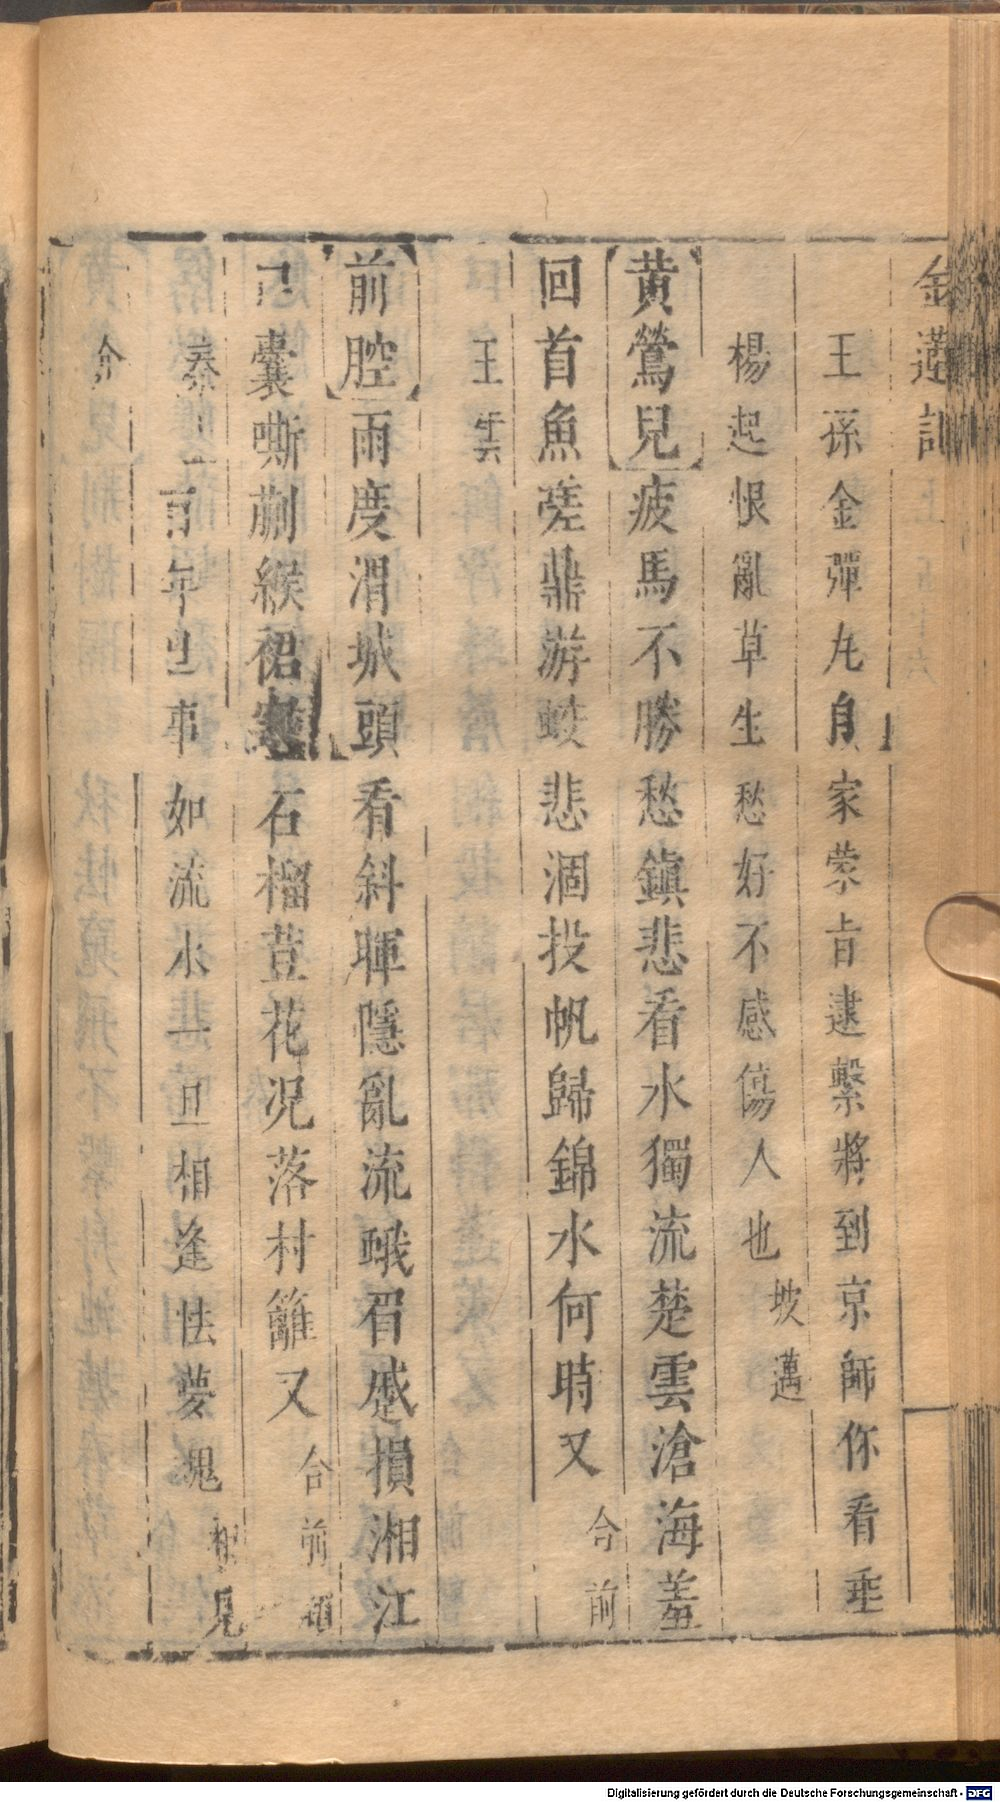 金蓮記
王孫金彈丸自家蒙旨逮繫將到京師你看垂
楊起恨亂草生愁好不感傷人也 坡邁
黃鶯兒 疲馬不勝愁鎮悲看水獨流楚雲滄海羞
回首魚嗟鼎游蛟悲涸投帆歸錦水何時又 合前
王雲
前腔 雨度渭城頭看斜暉隱亂流蛾眉蹙損湘江
囊嘶蒯緱裙 石榴荳花况落村籬又 合前
秦 百年世事如流水一旦相逢怯夢魂 相見
介
Digitalisierung gefördert durch die Deutsche Forschungsgemeinschaft - DFG